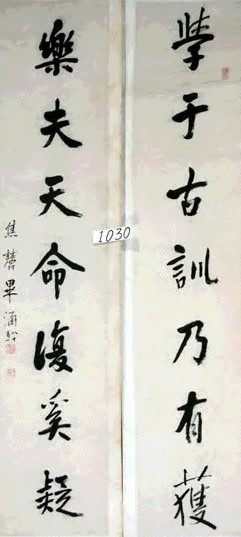 學于古訓乃有獲
樂夫天命復奚疑
焦麓畢涵
1030